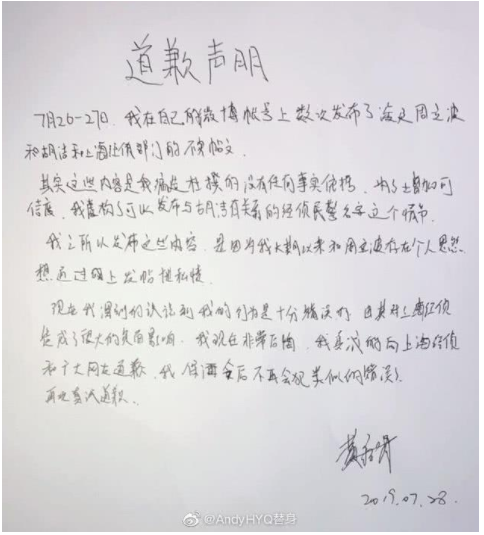 道歉声明
7月26-27日,我在自己的微博帐号上数次发布了涉及周立波
和胡洁和上海经侦部门的不实帖文。
其实这些内容是我编造杜撰的没有任何事实依据,为了增加可
信度,我虚构了可以发布与胡洁有关系的经侦民警名字这个情节。
我之所以发布这些内容,是因为我长期以来和周立波存在个人恩怨
想通过网上发帖泄私愤。
现在我深刻的认识到我的行为是十分错误的,尤其对上海经侦
造成了很大的负面影响。我现在非常后悔,我真诚的向上海经侦
和广大网友道歉,我保证今后不再会犯类似的错误。
再次真诚道歉。
黄
2019.07.28.
@AndyHYQ替身